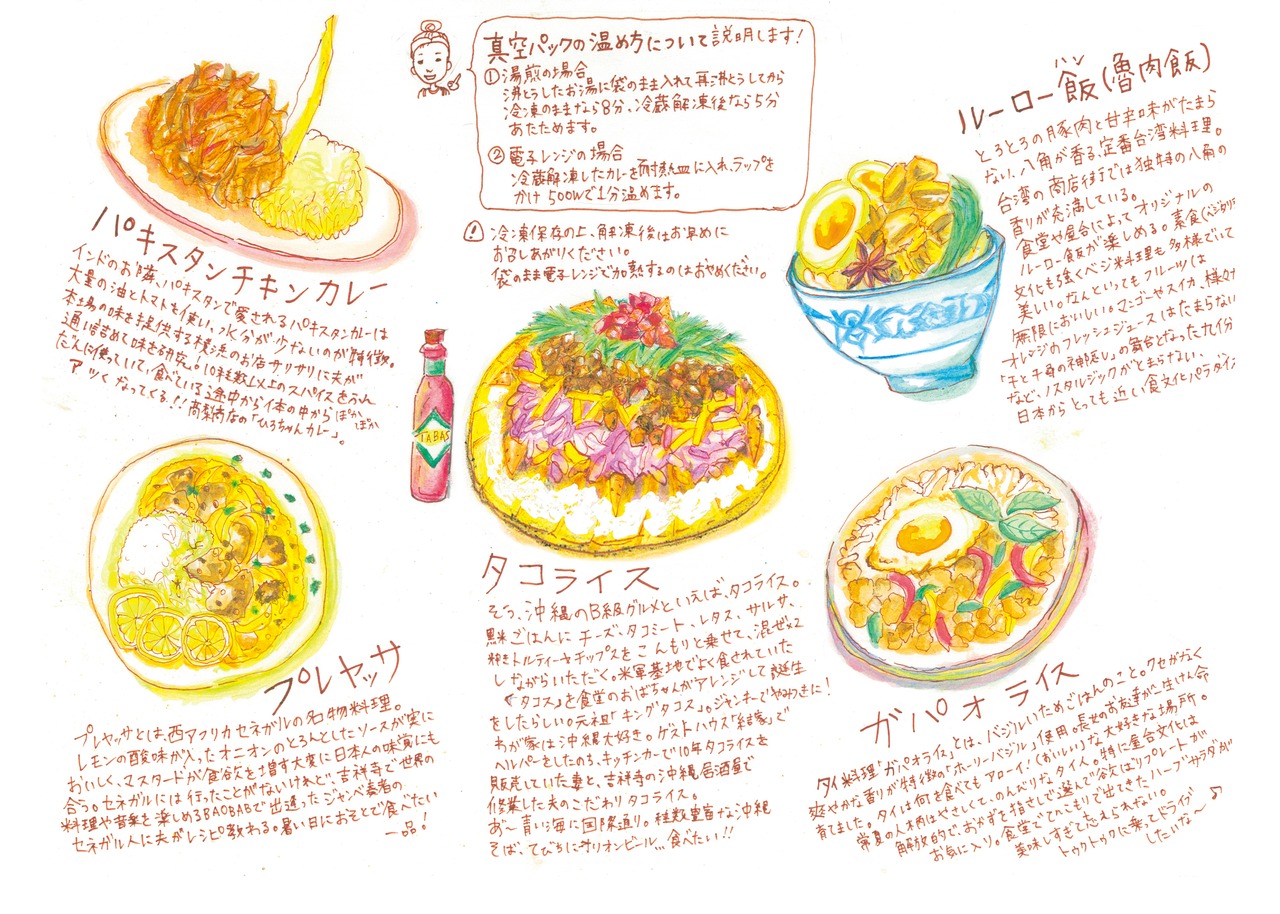 真空パックの温め方について説明します!
①湯煎の場合
沸とうしたお湯に袋のまま入れて再沸とうしてから
冷凍のままなら8分、冷蔵解凍後なら5分
あたためます。
②電子レンジの場合
冷蔵解凍したカレーを耐熱皿に入れ、ラップを
かけ 500Wで1分温めます。
! 冷凍保存の上、解凍後はお早めに
お召しあがりください。
袋のまま電子レンジで加熱するのはおやめください。
パキスタンチキンカレー
インドのお隣、パキスタンで愛されるパキスタンカレーは
大量の油とトマトを使い、水分が少ないのが特徴。
本場の味を提供する横浜のお店サリサリに夫が
通い詰めて味を研究。10種数以上のスパイスをふん
だんに使っていて、食べている途中から体の中からぽかぽか
アツくなってくる!!高梨商店の「ひろちゃんカレー」。
ルーロー飯(魯肉飯)
ハン
とろとろの豚肉と甘辛味がたまら
ない、八角が香る、定番台湾料理。
台湾の商店街では独特の八角の
香りが充満している。
食堂や屋台によってオリジナルの
ルーロー飯が楽しめる。素食(ベジタリ
文化も強くベジ料理も多様でいて
美しい。なんといってもフルーツは
無限においしい。マンゴーやスイカ、様々
オレンジのフレッシュジュースはたまらない
「千と千尋の神隠し」の舞台となった九份
など、ノスタルジックがとまらない、
日本からとっても近い食文化パラダイ
TABAS
タコライス
そう、沖縄のB級グルメといえば、タコライス。
米ごはんに チーズ、タコミート、レタス、サルサ、
砕きトルティーヤチップスを こんもりと乗せて、混ぜ混ぜ
しながらいただく。米軍基地でよく食されていた
《タコス》を食堂のおばちゃんがアレンジして誕生
をしたらしい。元祖「キングタコス」。ジャンキーでやわきに!
わが家は沖縄大好き。ゲストハウス「結家」で
ヘルパーをしたのち、キッチンカーで10年タコライスを
販売していた妻と、吉祥寺の沖縄居酒屋で
修業した夫のこだわりタコライス。
お〜青い海に国際通り。種数豊富な沖縄
そば、てびちにオリオンビール…食べたい!!
プレヤッサ
プレヤッサとは、西アフリカセネガルの名物料理。
レモンの酸味が入ったオニオンのとろんとしたソースが実に
おいしく、マスタードが食欲を増す大変に日本人の味覚にも
合う。セネガルには行ったことがないけれど、吉祥寺で世界の
料理や音楽を楽しめるBAOBABで出逢ったジャンベ奏者の
セネガル人に夫がレシピ教わる。暑い日におそとで食べたい
一品!
ガパオライス
タイ料理「ガパオライス」とは、バジルいためごはんのこと。クセがなく
爽やかな香りが特徴の「ホーリーバジル」使用。長せのお友達が一生けん命
育てました。タイは何を食べてもアローイ!(おいしい)な大好きな場所。
常夏の人柄はやさしくて、のんびりなタイ人。特に屋台文化は
解放的で、おかずを指さしで選んで欲ばりプレートが
お気に入り。食堂でひこもりで出てきたハーブサラダが
美味しすぎて忘れられない。
トゥクトゥクに乗ってドライブ
したいな〜♪